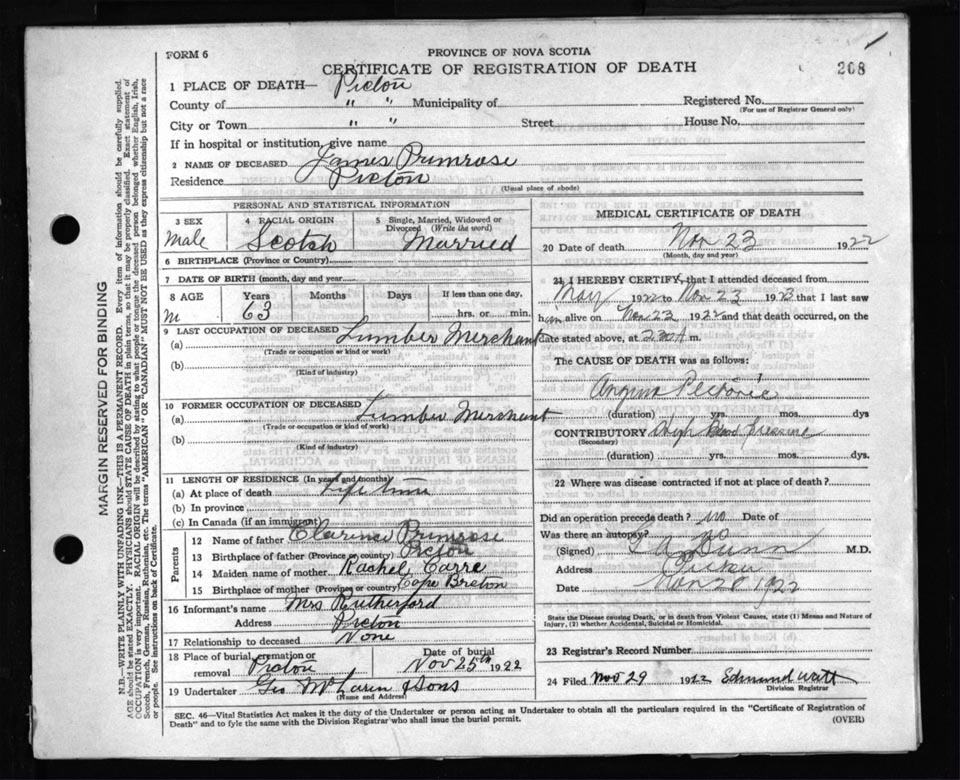 FORM 6
PROVINCE OF NOVA SCOTIA
CERTIFICATE OF REGISTRATION OF DEATH
208
1 PLACE OF DEATH— Pictou
County of " " Municipality of Registered No.
(For use of Registrar General only)
City or Town " " Street House No.
If in hospital or institution, give name
2 NAME OF DECEASED James Primrose
Residence Pictou
(Usual place of abode)
PERSONAL AND STATISTICAL INFORMATION
3 SEX Male
4 RACIAL ORIGIN Scotch
5 Single, Married, Widowed or Divorced (Write the word) Married
6 BIRTHPLACE (Province or Country)
7 DATE OF BIRTH (month, day and year
8 AGE Years Months Days If less than one day,
m 63 hrs. or min.
9 LAST OCCUPATION OF DECEASED
(a) Lumber Merchant
(Trade or occupation or kind or work)
(b)
(Kind of industry)
10 FORMER OCCUPATION OF DECEASED
(a) Lumber Merchant
(Trade or occupation or kind of work)
(b)
(Kind of Industry)
11 LENGTH OF RESIDENCE (In years and months)
(a) At place of death Life time
(b) In province
(c) In Canada (if an immigrant)
Parents
12 Name of father Clarence Primrose
13 Birthplace of father (Province or country) Pictou
14 Maiden name of mother Rachel Carre
15 Birthplace of mother (Province or country) Cape Breton
16 Informant's name Mrs Rutherford
Address Pictou
17 Relationship to deceased None
18 Place of burial, cremation or removal Pictou
Date of burial Nov 25th 1922
19 Undertaker Geo McLaren & Sons
(Name and Address)
MEDICAL CERTIFICATE OF DEATH
20 Date of death Nov 23 1922
(Month, day and year)
21 I HEREBY CERTIFY, that I attended deceased from
May 1922 to Nov 23 1923 that I last saw
him alive on Nov 23 1922 and that death occurred, on the
date stated above, at m.
The CAUSE OF DEATH was as follows:
Angina Pectoris
(duration) yrs. mos. dys
CONTRIBUTORY High Blood Pressure
(Secondary)
(duration) yrs. mos. dys.
22 Where was disease contracted if not at place of death?
Did an operation precede death? no Date of
Was there an autopsy? no
(Signed) Dunn M.D.
Address Pictou
Date 1922
State the Disease causing Death, or in death from Violent Causes, state (1) Means and Nature of Injury, (2) whether Accidental, Suicidal or Homicidal.
23 Registrar's Record Number
24 Filed Nov 29 1922 Edmund Watt
Division Registrar
SEC. 46—Vital Statistics Act makes it the duty of the Undertaker or person acting as Undertaker to obtain all the particulars required in the "Certificate of Registration of
Death" and to fyle the same with the Division Registrar who shall issue the burial permit.
(OVER)
MARGIN RESERVED FOR BINDING
N.B.—WRITE PLAINLY WITH UNFADING INK—THIS IS A PERMANENT RECORD. Every item of information should be carefully supplied.
AGE should be stated EXACTLY. PHYSICIANS should STATE CAUSE OF DEATH in plain terms, so that it may be properly classified. Exact statement of
OCCUPATION is very important. RACIAL ORIGIN will be described by stating to what people or tongue the deceased person belonged whether English, Irish,
Scotch, French, German, Russian, Ruthenian, etc. The terms "AMERICAN" OR "CANADIAN" MUST NOT BE USED as they express citizenship but not a race
or people. See instructions on back of Certificate.